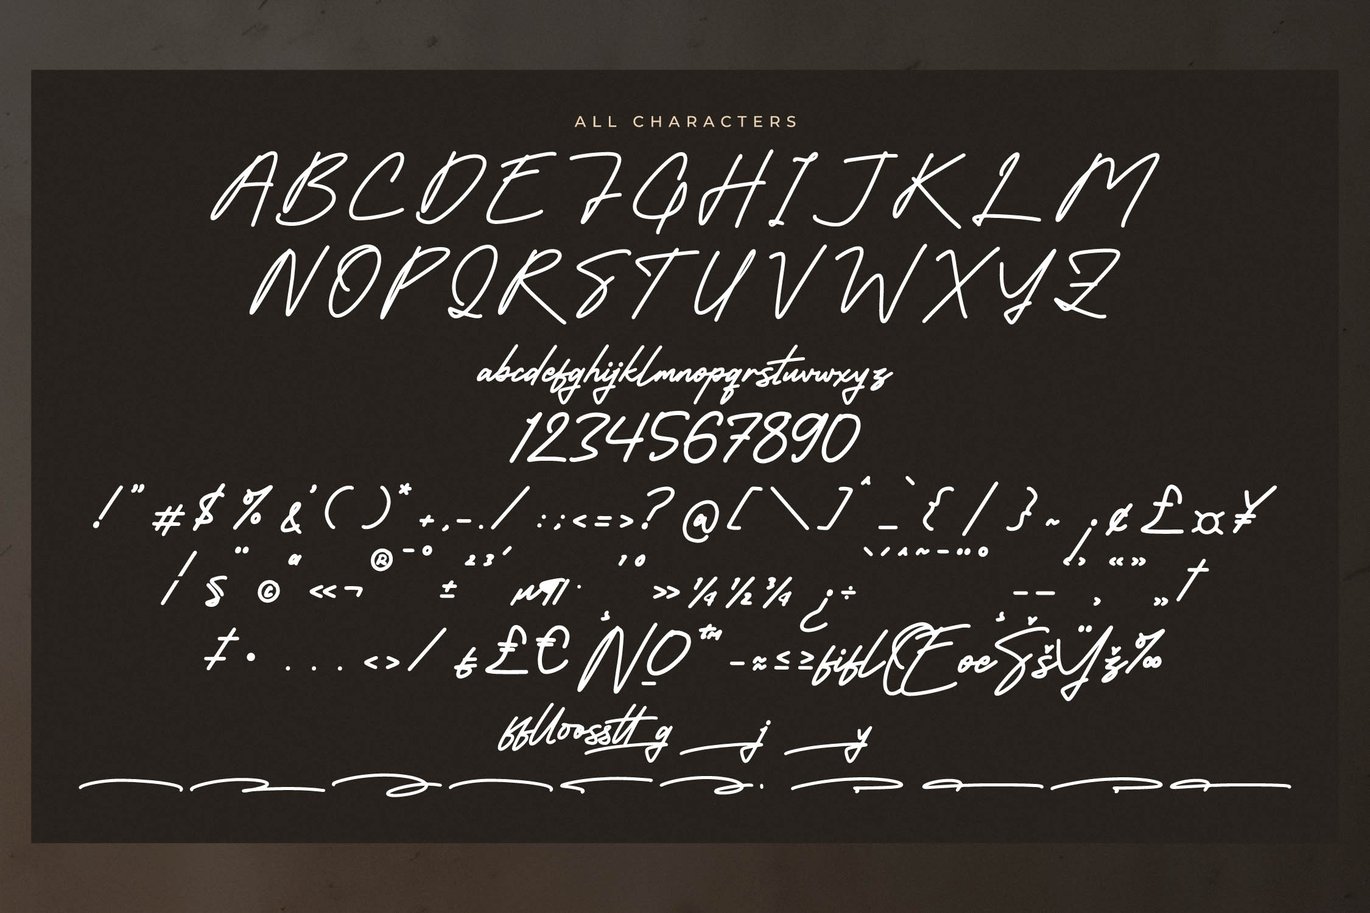 ALL CHARACTERS
ABCDEFGHIJKLM
NOPQRSTUVWXYZ
abcdefghijklmnopqrstuvwxyz
1234567890
!"#$%&'()*+,-./:;<=>?@[\]^_`{/}~¡¢£¤¥
¦§¨©ª«¬®¯°±²³´µ¶·¸¹º»¼½¾¿÷
‡•...‹›⁄₣₤€№™−≈≤≥fiflŒœŠšŸž‰
fflloossttg j y